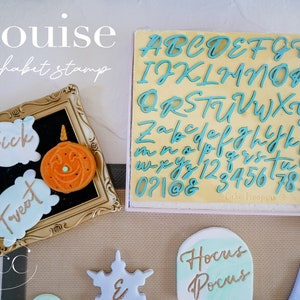 ouise
habet stamp
ABCDEFG
IJKLMNO
QRSTUV
Zabcdefghijk
mnopqrstuv
wxyz12
0?!@& 345678
ick
Treat
Hocus
Pocus
E
CC